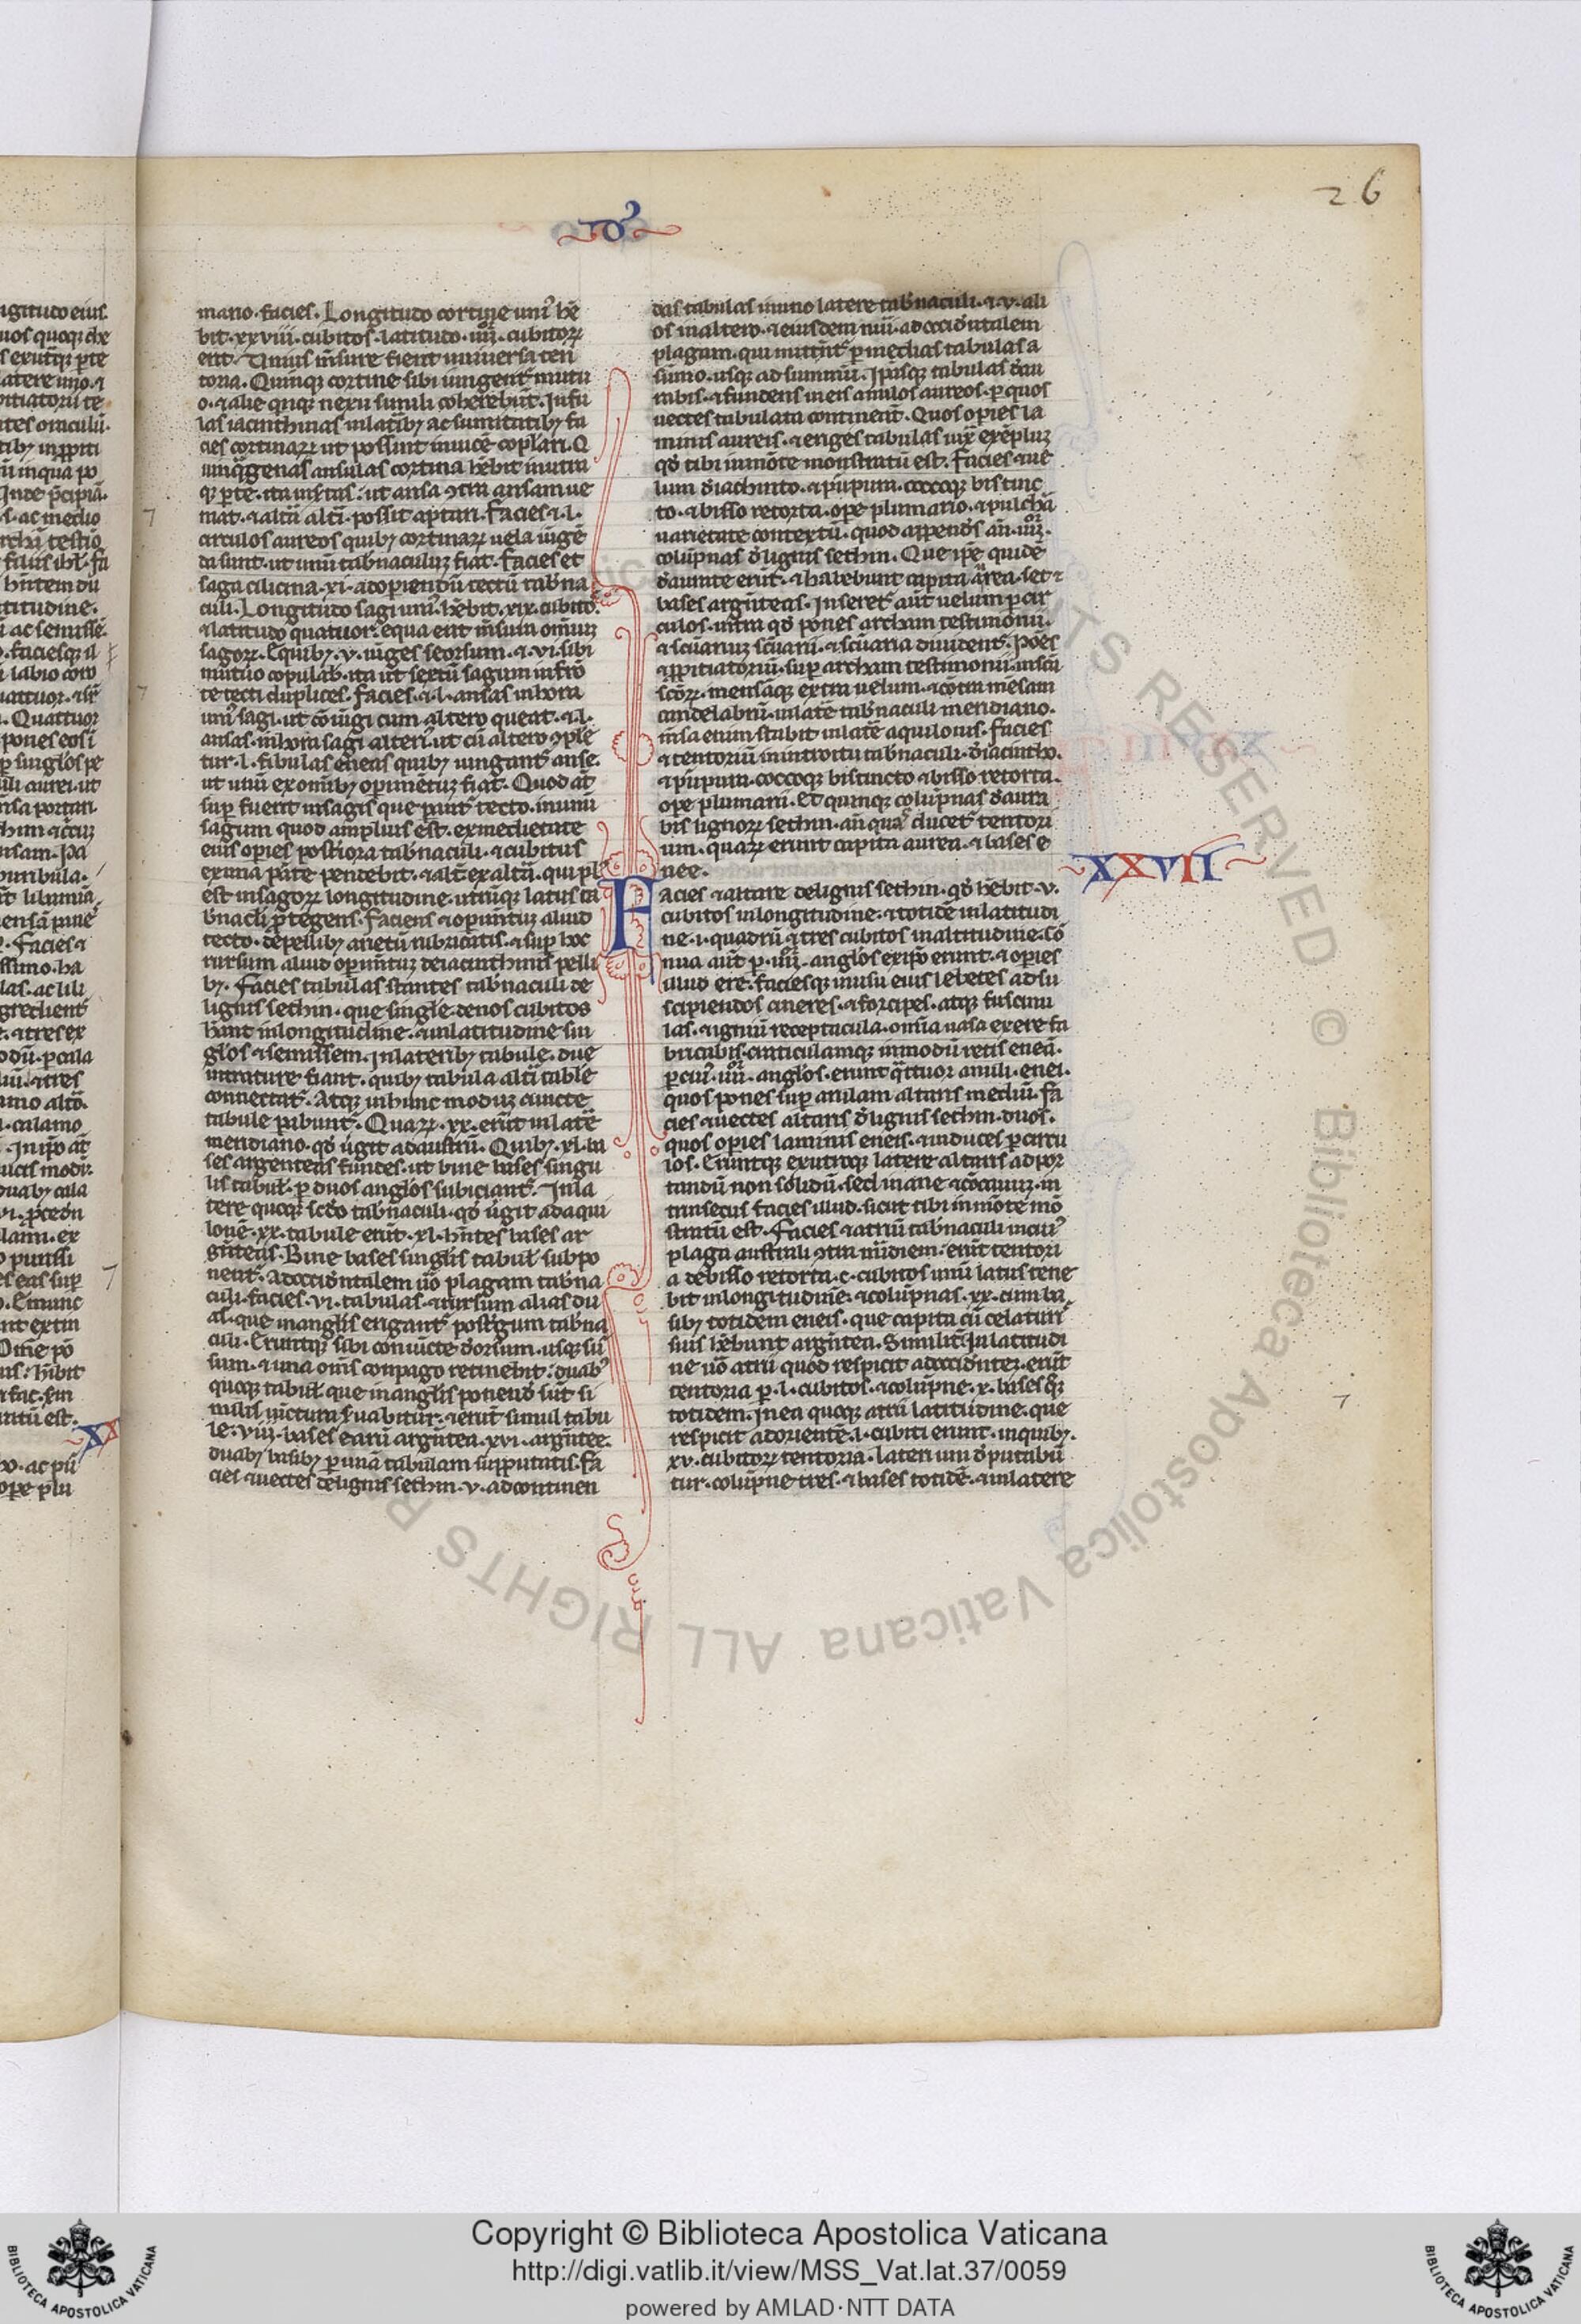 26
mario. facies. Longitudo cortine uni᾽ hē
bit. xxviii. cubitos. latitudo. iiii. cubitoꝝ
erit. Unius m̄sure fient uniuersa ten
toria. Quinqꝫ cortine sibi iungent᾽ mutu
o. ⁊ alie qinqꝫ nexu simili coherebūt. Ansu
las iacinthinas in lat̄ibꝫ ac sumitatibꝫ fa
cies cortinaꝝ ut possint inuicē coplari. Q
uinq̄genas ansulas cortina hēbit in utra
qꝫ ꝑte. ita inſ̄tas. ut ansa ↄtra ansam ue
niat. ⁊ altā alt̄i. possit aptari. facies ⁊ l.
circulos aureos quibꝫ cortinaꝝ uela iūgē
da sunt. ut unū tab̄naculuꝫ fiat. facies et
saga cilicina. xi. ad oꝑiendū tectū tab̄na
culi. Longitudo sagi uni᾽. hēbit. xxx. cubito᾽.
⁊ latitudo quatuor. equa erit m̄sura om̄iuꝫ
sagoꝝ. E quibꝫ. v. iūges seorsum. ⁊ vi. sibi
mutuo copulab᾽. ita ut sextū sagum in frō
te tecti duplices. facies. ⁊ l. ansas in hora
uni᾽ sagi. ut cōiūgi cum altero queat. ⁊ l.
ansas. in hora sagi alteri᾽. ut cū altero ↄple
tur. l. fibulas eneas quibꝫ iungant᾽ anse.
ut unū ex omībꝫ oꝑimētuꝫ fiat. Quod at̄
suꝑ fuerit in sagis que parāt᾽ tecto. in unū
sagum quod amplius est. ex medietate
eius oꝑies post̄iora tab̄naculi. ⁊ cubitus
ex una parte pendebit. ⁊ alt̄ ex altā. qui pl᾽
est in sagoꝝ longitudine. utrūqꝫ latus ta
b̄nacli ꝓtegens. facies ⁊ oꝑim̄tuꝫ aliud
tecto. de pellibꝫ arietū rubricatis. ⁊ suꝑ hoc
rursum aliud oꝑim̄tuꝫ de iacinthinis pelli
bꝫ. Facies tabulas stantes tab̄naculi de
lignis sethin. que singule denos cubitos
hānt in longitudine. ⁊ in latitudine sin
gl᾽os ⁊ semissem. In lateribꝫ tabule. due
incrature fiant. quibꝫ tabula alt̄i table
connectat᾽. Atqꝫ in hunc moduꝫ cuncte
tabule parabunt᾽. Quaꝝ. xx. erūt in lat̄e
meridiano. qd̄ ūgit ad austrū. Quibꝫ. xl. ba
ses argenteas fundes. ut bine bases singu
lis tabul᾽. ꝑ duos angl᾽os subiciant᾽. In la
tere quoqꝫ scd̄o tab̄naculi. qd̄ ūgit ad aqui
lonē. xx. tabule erūt. xl. hn̄tes bases ar
gn̄teas. Bine bases singl᾽is tabul᾽ subpo
nent᾽. Ad occid̄ntalem ūo plagam tab̄na
culi. facies. vi. tabulas. ⁊ rursum alias du
as. que in angl᾽is erigant᾽ post̄gum tab̄na
culi. Eruntqꝫ sibi coniūcte dorsum. usqꝫ sū
sum. ⁊ una om̄s conpago retinebit. duab᾽
quoqꝫ tabul᾽ que in angl᾽is ponend̄ sūt si
milis iūctura s̄uabitur. ⁊ erūt simul tabu
le. viii. bases earū argn̄tea. xvi. argn̄tee.
duabꝫ basibꝫ ꝑ unā tabulam supputatis. fa
cies ⁊ uectes de lignis sethin. v. ad continen
das tabulas in uno latere tab̄naculi. ⁊ v. ali
os in altero. ⁊ eiusdem nūi. ad occid̄ntalem
plagam. qui mittēt᾽ ꝑ medias tabulas a
sumo. usqꝫ ad summū. Ipasqꝫ tabulas d̄au
rabis. ⁊ fundens in eis anulos aureos. ꝑ quos
uectes tabulata contineāt. Quos oꝑies la
minis aureis. ⁊ eriges tabulas iux̄ exēpluꝫ
qd̄ tibi in mōte monstratū est. Facies ⁊ ue
lum d̄ iachinto. ⁊ purpura. coccoqꝫ bis tinc
to. ⁊ bisso retorta. opere plumario. ⁊ pulchā
uarietate contextū. quod append̄s an̄. iiii.
colūpnas d̄ lignis sethin. Que ipe quidē
d̄aurate erūt. ⁊ habebunt capita aurea. set ⁊
bases argn̄teas. Inseret᾽ aūt uelum ꝑ cir
culos. intra qd̄ pones archam testimonii.
⁊ sc̄uariuꝫ sc̄uarii. ⁊ sc̄uaria diuidens. Pōes
⁊ ꝓpitiatoriū. suꝑ archam testimonii. in sc̄ū
sc̄oꝝ. mensāqꝫ extra uelum. ⁊ cōtra mēsam
candelabrū. in latē tab̄naculi meridiano.
m̄sa enim stabit in latē aquilonis. facies
⁊ tentoriū in introitu tab̄naculi. d̄ iacintho.
⁊ purpura. coccoqꝫ bis tincto ⁊ bisso retorta.
oꝑe plumarii. Et quinqꝫ colūpnas d̄aura
bis lignoꝝ sethin. an̄ qua᾽ ducet᾽ tentori
um. quaꝝ erunt capita aurea. ⁊ bases e
nee.
XXVII
Facies ⁊ altare de lignis sethin. qd̄ hēbit. v.
cubitos in longitudine. ⁊ totidē in latitudi
ne. i. quadrū. ⁊ tres cubitos in altitudine. Cō
nua aūt ꝑ. iiii. angl᾽os ex ip̄o erunt. ⁊ oꝑies
illud ere. faciesqꝫ in usu eius lebetes ad su
scipiendos cineres. ⁊ forcipes. atqꝫ fuscinu
las. ⁊ igniū receptacula. om̄ia uasa ex ere fa
bricabis. craticulamqꝫ in modū retis eneā.
ꝑ cui᾽. iiii. angl᾽os. erunt q̄ttuor anuli. enei.
quos pones suꝑ arulam altaris mediū. fa
cies ⁊ uectes altaris d̄ lignis sethin. duos.
quos oꝑies laminis eneis. ⁊ induces ꝑ circu
los. Eruntqꝫ ex utroqꝫ latere altaris ad por
tandū non solidū. sed inane ⁊ cōcauuꝫ. in
trinsecus facies illud. sicut tibi in mōte mō
stratū est. Facies ⁊ atriū tab̄naculi in cui᾽
plaga australi ↄtra m̄idiem. erūt tentori
a de bisso retorta. c. cubitos unū latus tene
bit in longitudine. ⁊ colūpnas. xx. cum ba
sibꝫ totidem eneis. que capita cū celaturi᾽
suis hēbunt argn̄tea. Similit᾽. In latitudi
ne ūo atrii quod respicit ad occid̄nteꝫ. erūt
tentoria ꝑ. l. cubitos. ⁊ colūpne. x. bases qꝫ
totidem. In ea quoqꝫ atrii latitudine. que
respicit ad orientē. l. cubiti erunt. in quibꝫ.
xv. cubitoꝝ tentoria. lateri uni d̄putabū
tur. colūpne tres. ⁊ bases totidē. ⁊ in latere
Copyright © Biblioteca Apostolica Vaticana
http://digi.vatlib.it/view/MSS_Vat.lat.37/0059
powered by AMLAD·NTT DATA
BIBLIOTECA APOSTOLICA VATICANA
BIBLIOTECA APOSTOLICA VATICANA